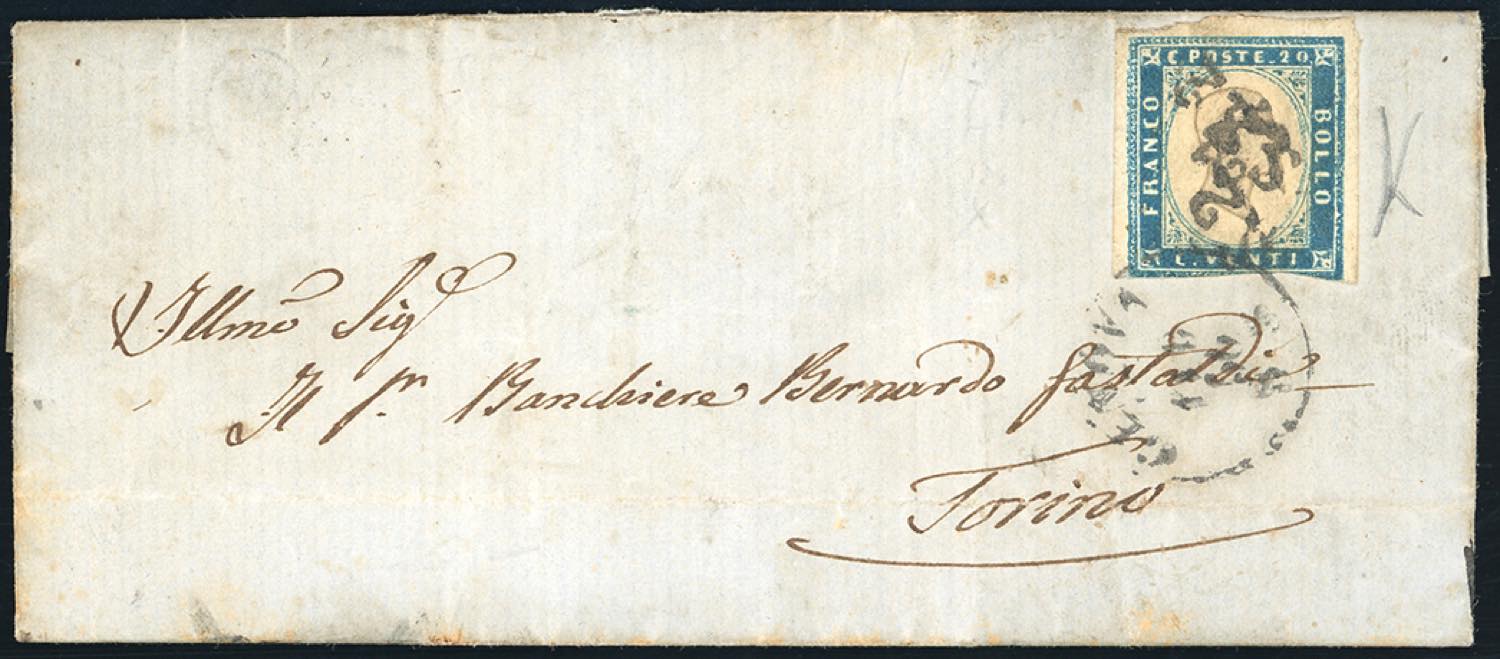 C. POSTE. 20
FRANCO
BOLLO
C. VENTI
Illmo Sigr
Il Sr Banchiere Bernardo Gastaldi
Torino
X